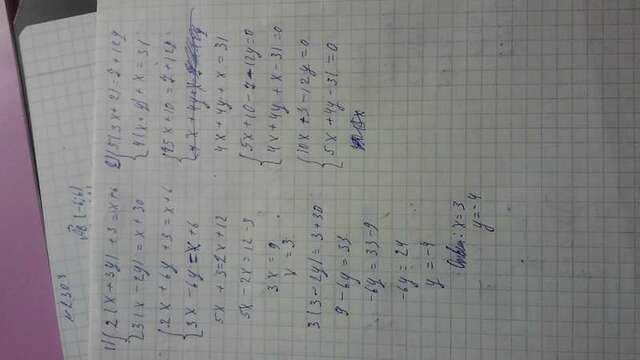 №2303
1) { 2(x + 3y) + 3 = x + 6
3(x - 2y) = x + 30
{ 2x + 6y + 3 = x + 6
3x - 6y = x + 6
5x + 3 = 2x + 12
5x - 2x = 12 - 3
3x = 9
x = 3
3(3 - 2y) = 3 + 30
9 - 6y = 33
-6y = 33 - 9
-6y = 24
y = -4
Ответ: x = 3
y = -4
2) { 5(3x + 2) = 7 + 12y
4(x + y) + x = 31
{ 15x + 10 = 7 + 12y
4x + 4y + x = 31
{ 15x + 10 - 7 - 12y = 0
4x + 4y + x - 31 = 0
{ 10x + 3 - 12y = 0
5x + 4y - 31 = 0